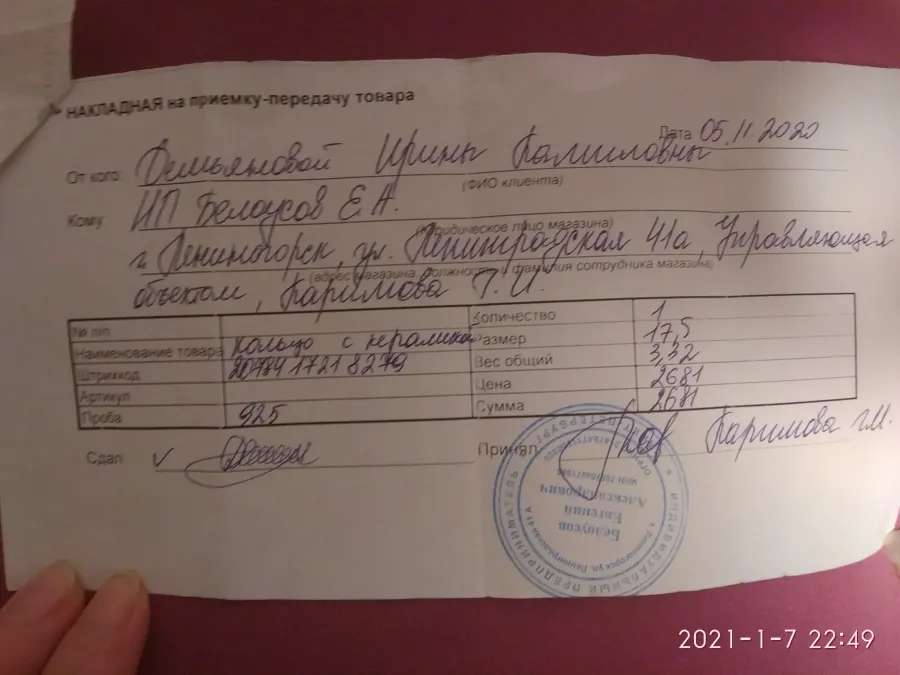 НАКЛАДНАЯ на приемку-передачу товара
Дата 05.11.2020
От кого: Демьяновой Ирины Камиловны
(ФИО клиента)
Кому: ИП Белоусов Е.А.
(юридическое лицо магазина)
г. Лениногорск, ул. Ленинградская 41а, Управляющая
(адрес магазина, должность и фамилия сотрудника магазина)
объектом, Каримова Г.И.
№ п/п Количество 1
Наименование товара кольцо с керамика Размер 17,5
Штрихкод Вес общий 3,32
Артикул Цена 2681
Проба 925 Сумма 2681
Сдал Принял Каримова г.М.
ИНДИВИДУАЛЬНЫЙ ПРЕДПРИНИМАТЕЛЬ
Белоусов
Евгений
Александрович
2021-1-7 22:49